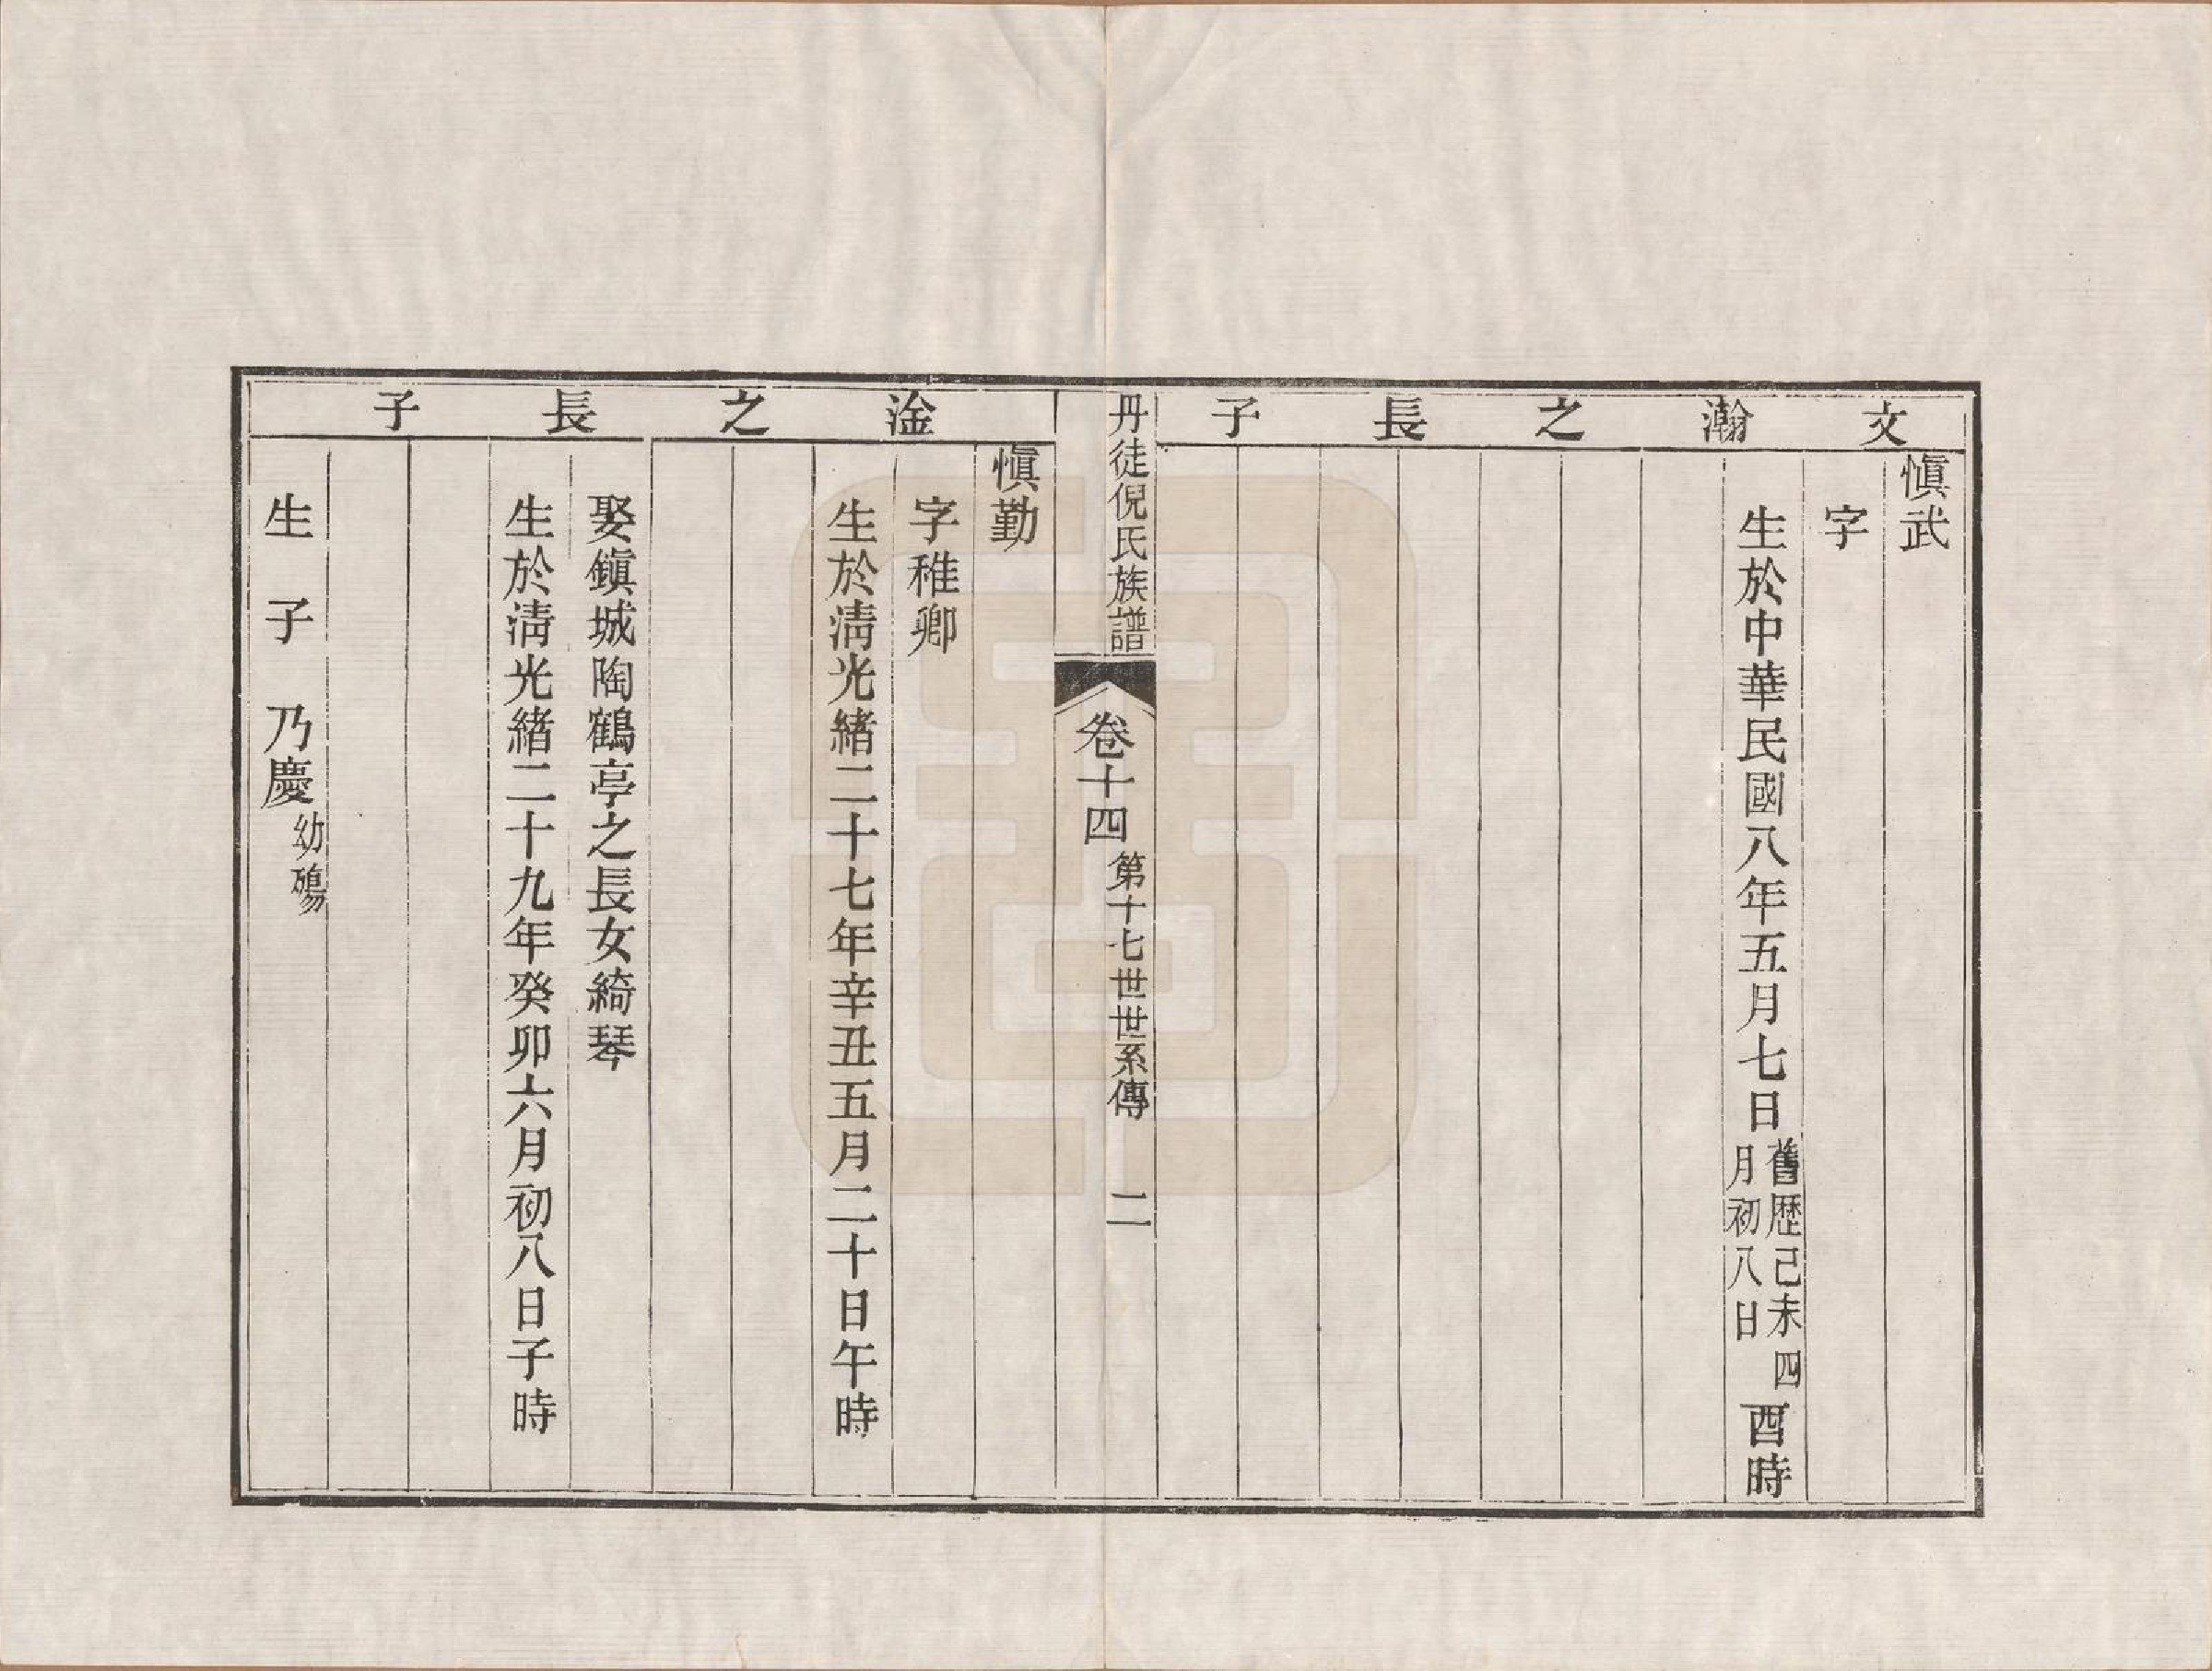 文瀚之長子
愼武
字
生於中華民國八年五月七日舊歷己未四月初八日酉時
丹徒倪氏族譜
卷十四
第十七世世系傳
二
淦之長子
愼勤
字稚卿
生於淸光緒二十七年辛丑五月二十日午時
娶鎭城陶鶴亭之長女綺琴
生於淸光緒二十九年癸卯六月初八日子時
生 子 乃慶幼殤